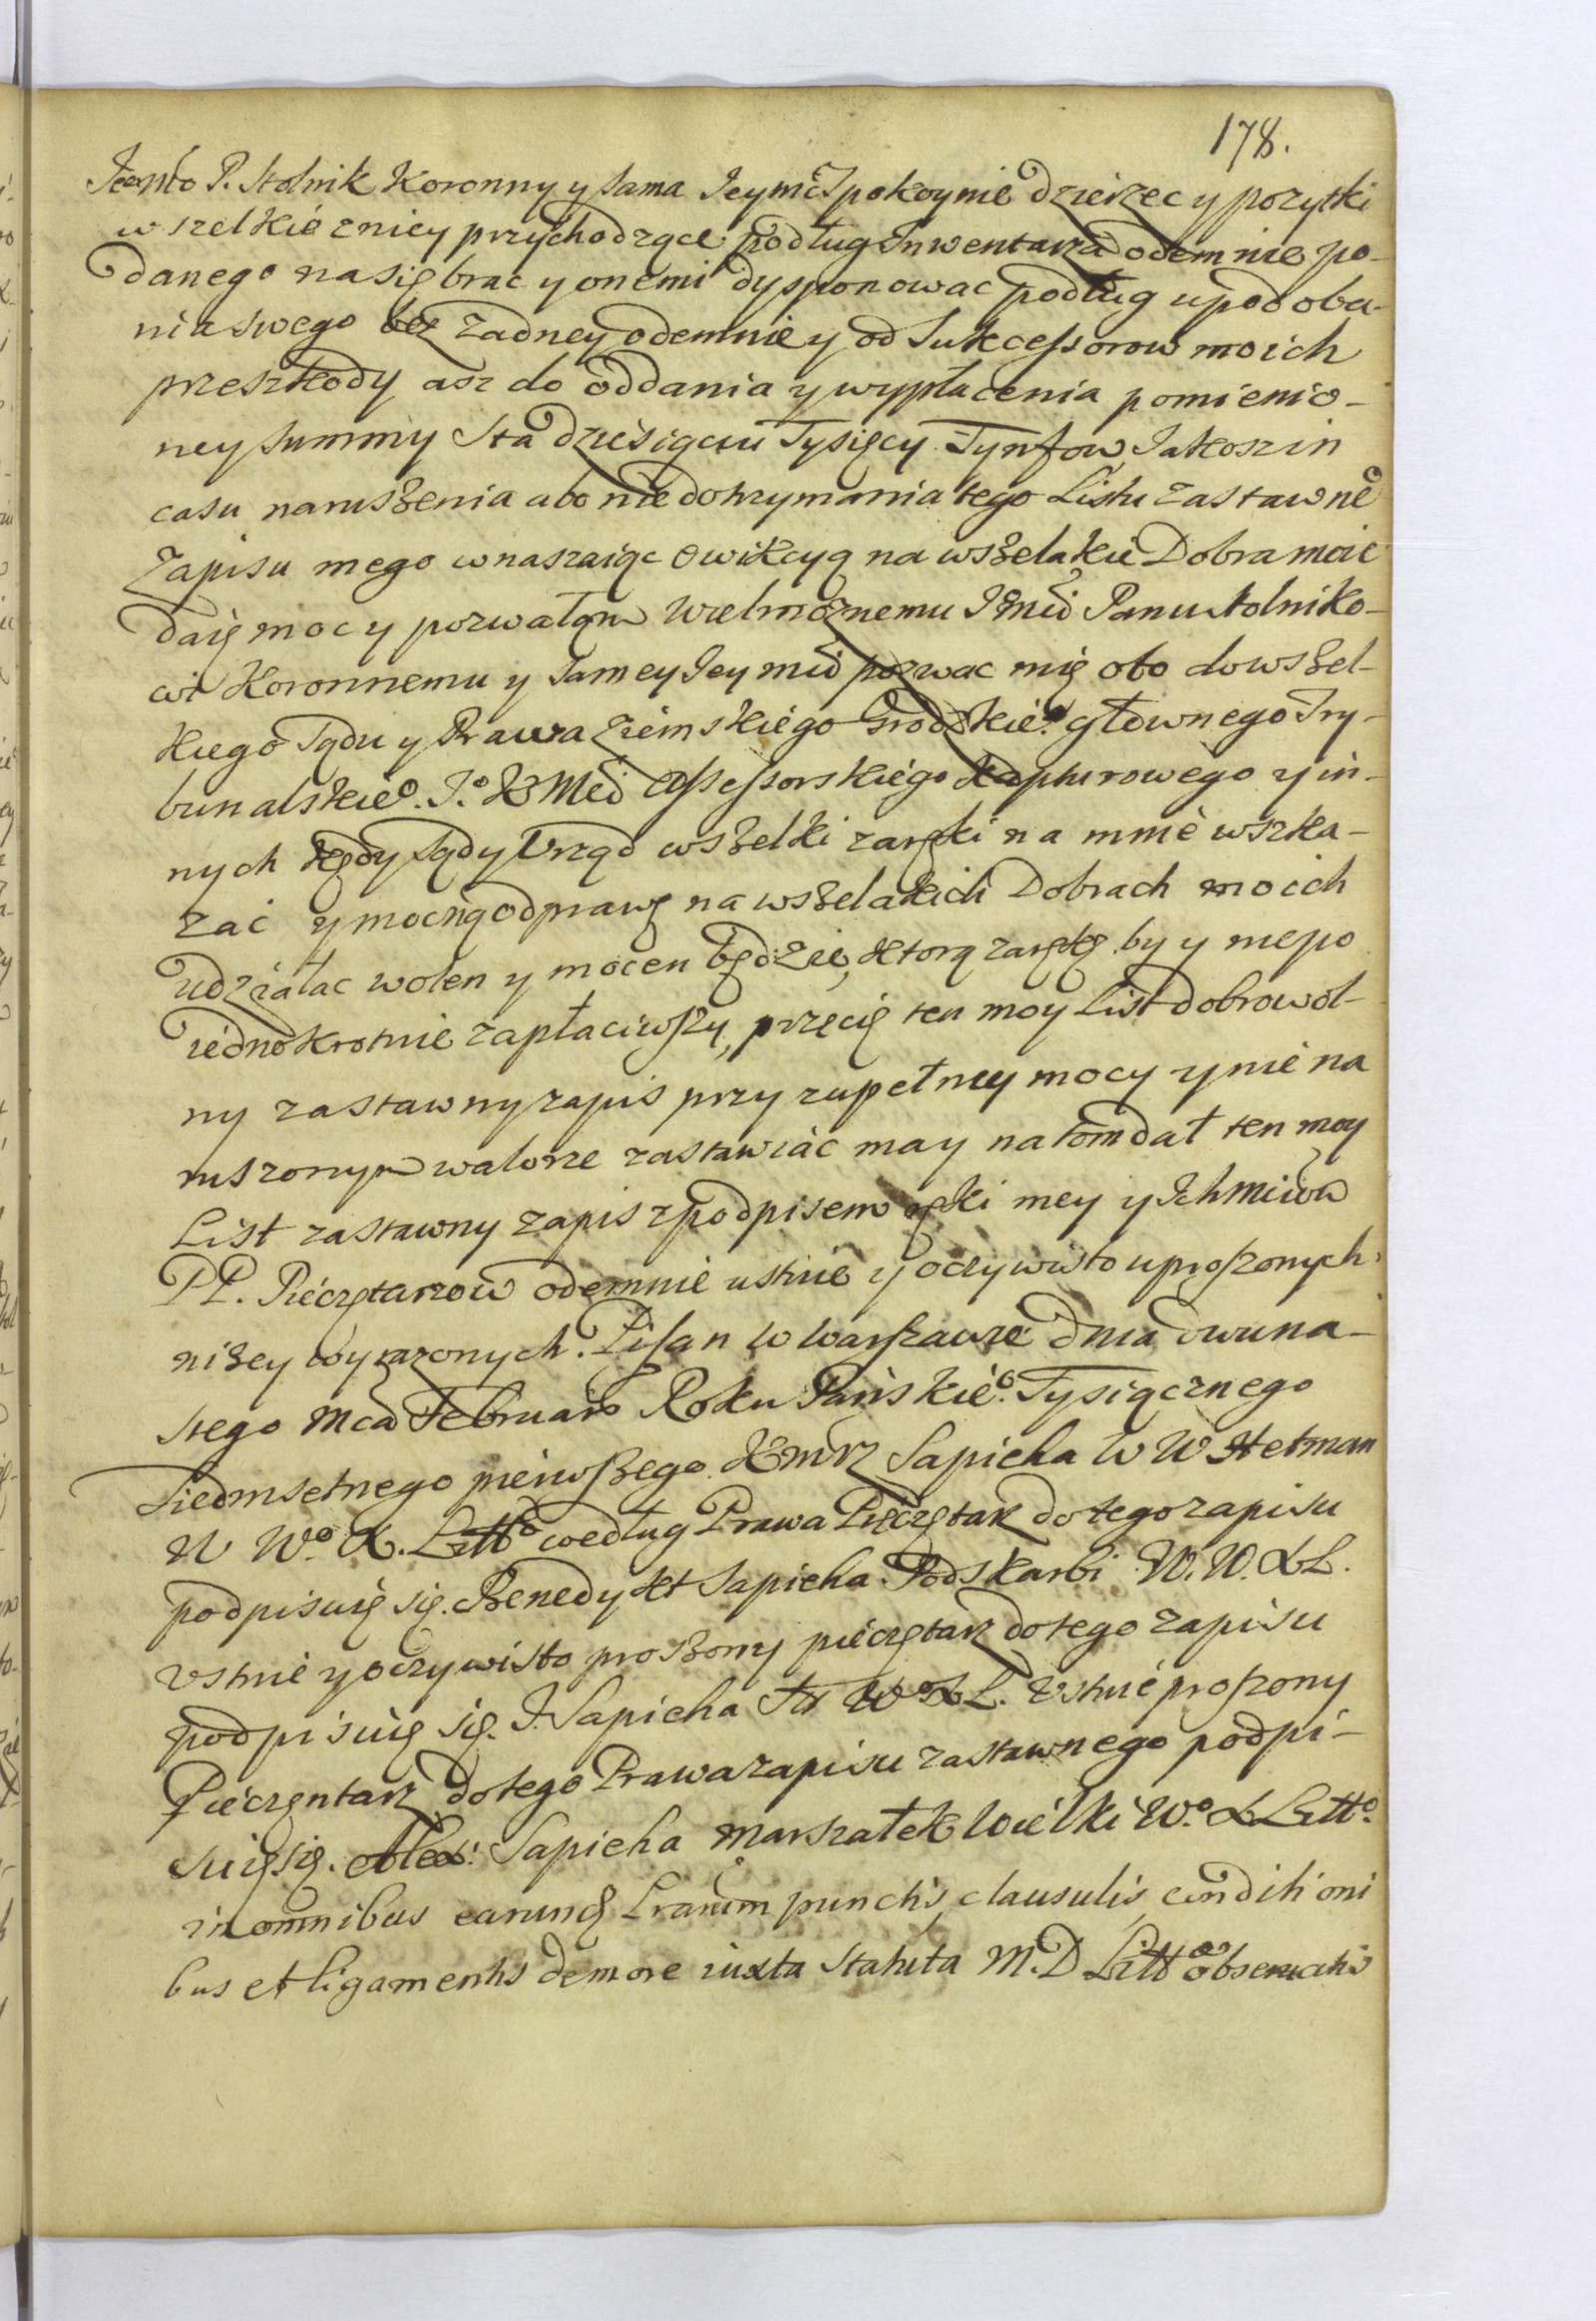 178.
Jeomło P. Stolnik Koronny y sama Jeymć spokoynie dzierzec y pozytki
wszelkie zniey przychodzące podług Inwentarza odemnie po-
danego nasię brac y onemi dysponowac podług upodoba-
nia swego bez zadney odemnie y od Sukcessorow moich
przeszkody asz do oddania y wypłacenia pomienio-
ney summy Sta dziesięciu Tysięcy Tynfow, Jakosz in
casu naruszenia abo niedotrzymania tego Listu zastawne°
Zapisu mego wnaszaiąc Ewikcyą na wszelakie Dobra moie
daię moc y pozwalam Wielmoznemu Jmći Panu Stolniko-
wi Koronnemu y Samey Jeymći pozwac mię oto do wszel-
kiego Sądu y Prawa Ziemskiego Grodzkie° głownego Try-
bunalskie°. J° K Mći Assessorskiego Kapturowego y in-
nych kędy sądy Urząd wszelki zaręki na mnie wszka-
zać y mocną odprawę na wszelakich Dobrach moich
udziałac wolen y mocen będzie, ktorą zarękę by y niepo
iednokrotnie zapłaciwszy, przecię ten moy List dobrowol-
ny zastawny zapis przy zupełney mocy y nie na
ruszonym walorze zastawiac ma y natom dał ten moy
List zastawny zapis z podpisem ręki mey y Ichmciow
PP. Pieczętarzow odemnie ustnie y oczywisto uproszonych
niżey wyrazonych. Pisan w Warszawie dnia dwuna-
stego Mca Februar° Roku Pańskie°. Tysiącznego
Siedmsetnego pierwszego. Kmrz Sapieha W W Hetman
W W° X. Litt° według Prawa Pieczętarz do tego zapisu
podpisuię się. Benedykt Sapieha Podskarbi W. W. X L.
Ustnie y oczywisto proszony pieczętarz do tego zapisu
podpisuię się. J. Sapieha W° X L. Ustnie proszony
Pieczentarz do tego Prawa zapisu zastawnego podpi-
suię się. Alex: Sapieha Marszałek Wielki W° X Litt°.
in omnibus earund Lrarum punctis, clausulis, conditioni
bus et ligamentis de more iuxta Statuta M. D Litt observatis